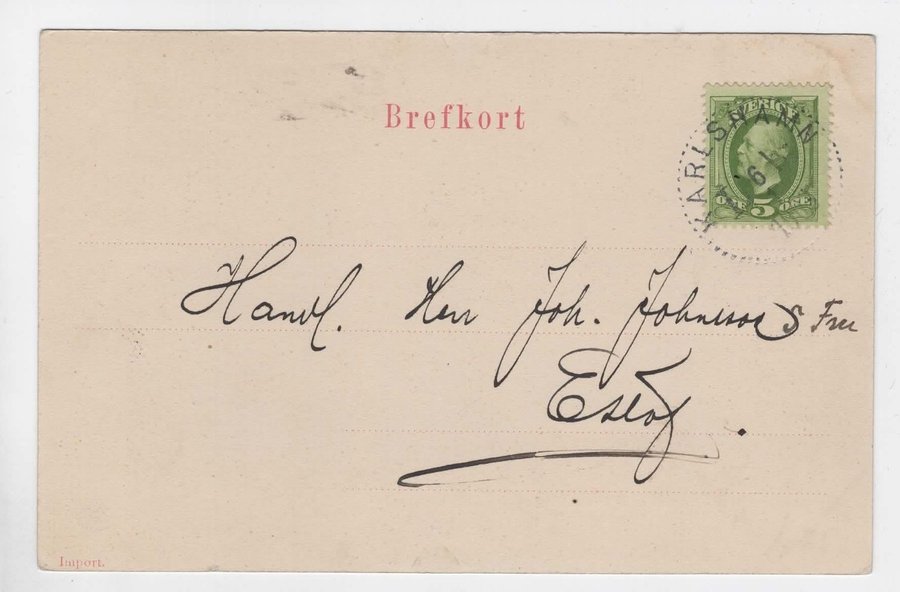 Brefkort
SVERIGE
KARLSHAMN
ÖRE 5 ÖRE
Handl. Herr Joh. Johnsson S Fru
Eslöf.
Import.